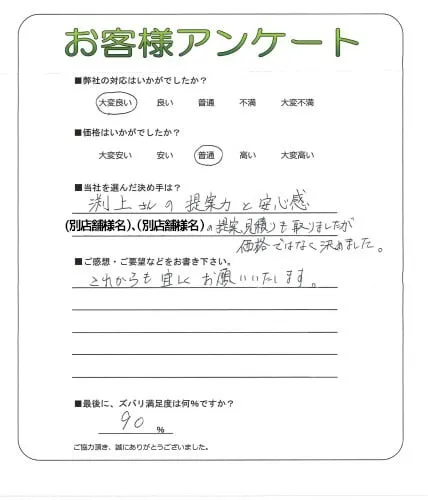 お客様アンケート
■弊社の対応はいかがでしたか？
大変良い 良い 普通 不満 大変不満
■価格はいかがでしたか？
大変安い 安い 普通 高い 大変高い
■当社を選んだ決め手は？
渕上さんの提案力と安心感
(別店舗様名)、(別店舗様名)の提案見積りも取りましたが
価格ではなく決めました。
■ご感想・ご要望などをお書き下さい。
これからも宜しくお願いいたします。
■最後に、ズバリ満足度は何％ですか？
90 %
ご協力頂き、誠にありがとうございました。